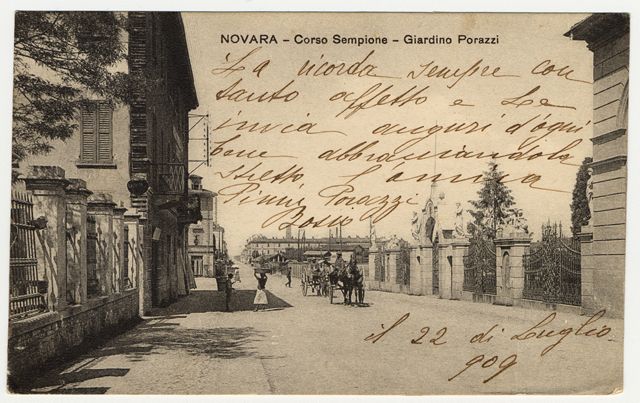 NOVARA – Corso Sempione – Giardino Porazzi
La ricorda sempre con
tanto affetto e Le
invia auguri d'ogni
bene abbracciandola
stretto l'amica
Pinin Porazzi
Bosso
il 22 di Luglio
909